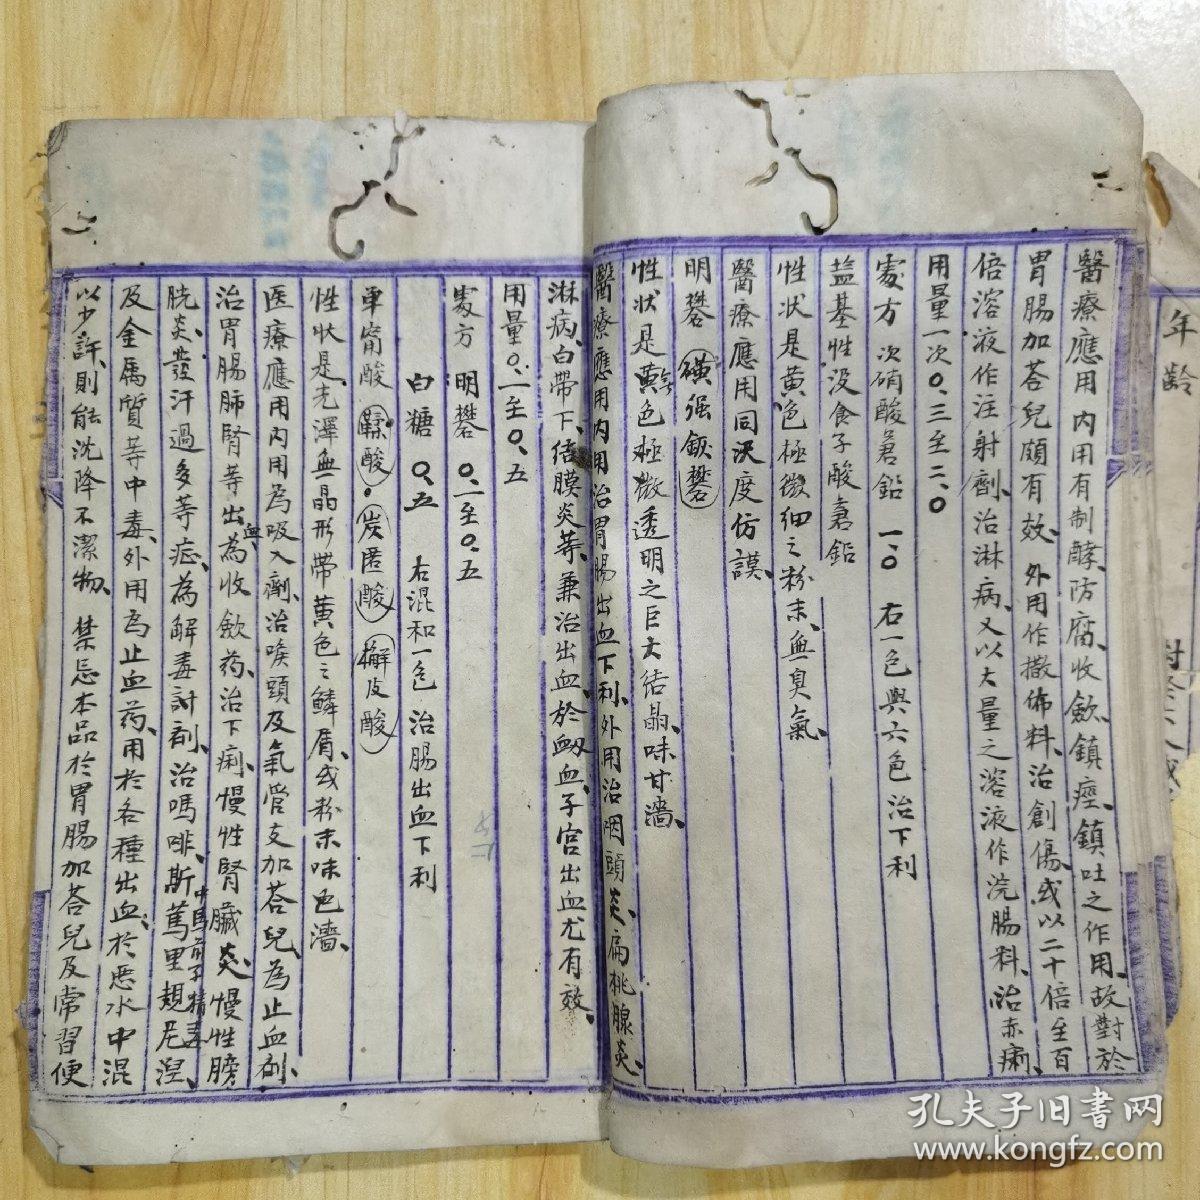 醫療應用 內用有制酵、防腐、收歛、鎮痙、鎮吐之作用、故對於
胃腸加荅兒頗有效、外用作撒佈料、治創傷、或以二十倍至百
倍溶液作注射劑、治淋病、又以大量之溶液作浣腸料、治赤痢、
用量一次〇、三至二、〇
處方 次硝酸蒼鉛 一、〇 右一包與六包 治下利
盐基性没食子酸蒼鉛
性状是黄色極微細之粉末、無臭氣、
醫療應用同次度仿謨、
明礬 磺强鋏礬
性状是黄色極微透明之巨大結晶、味甘濇、
醫療應用內用治胃腸出血下利、外用治咽頭炎、扁桃腺炎、
淋病、白帶下、結膜炎等、兼治出血、於衂血、子宫出血尤有效、
用量〇、一至〇、五
處方 明礬 〇、一至〇、五
白糖 〇、五 右混和一包 治腸出血下利
单甯酸 鞣酸・炭匿酸 檞皮酸
性状是光澤無晶形帶黄色之鱗屑、或粉末味色濇、
医療應用內用為吸入劑、治喉頭及氣管支加荅兒、為止血剤、
治胃腸肺腎等出血、為收歛药、治下痢、慢性腎臟炎、慢性膀
胱炎、發汗過多等症、為解毒討剤、治嗎啡、斯篤里規尼湼、
中馬前子精毒
及金属質等中毒、外用為止血药、用於各種出血、於悪水中混
以少許、則能沈降不潔物、禁忌本品於胃腸加荅兒及常習便
年齡
孔夫子旧書网
www.kongfz.com